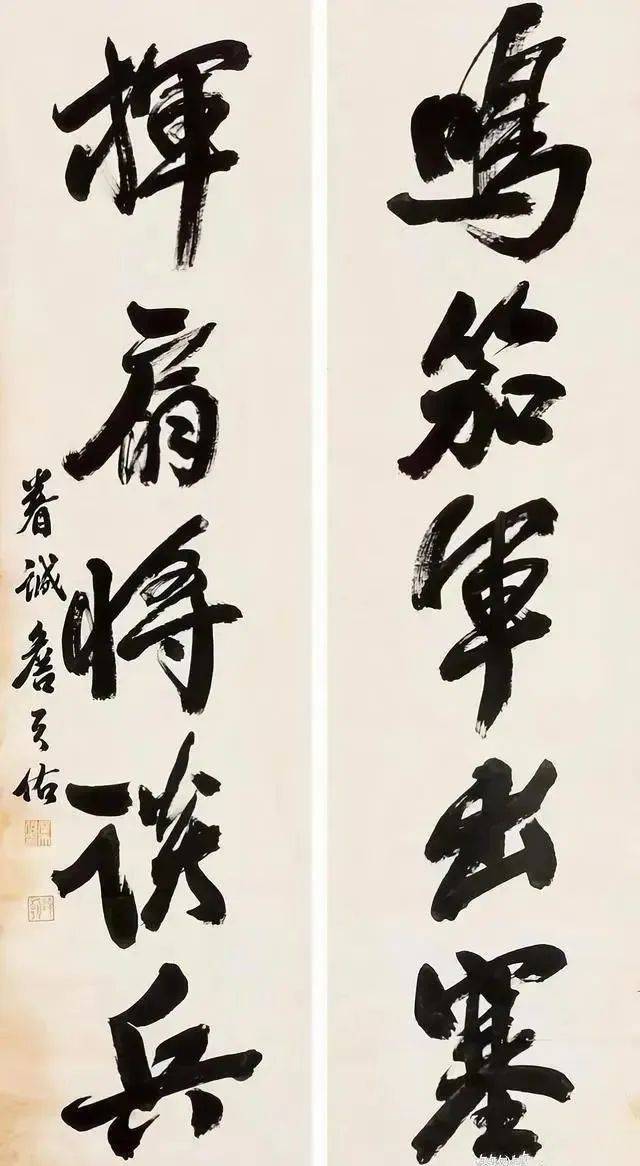 鳴笳軍出塞
揮扇將談兵
眷誠詹天佑